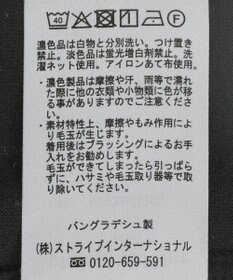 40
濃色品は白物と分別洗い。つけ置き
禁止。淡色品は蛍光増白剤禁止。洗
濯ネット使用。アイロンあて布使用。
・濃色製品は摩擦や汗、雨等で濡れ
た際に他の衣類や小物類に色が移
る事がありますのでご注意くださ
い。
・素材特性上、摩擦やもみ作用によ
り毛玉が生じます。
着用後はブラッシングによるお手
入れをお勧めします。
毛玉ができてしまったら引っぱら
ずに、ハサミや毛玉取り器等で取
り除いてください。
バングラデシュ製
(株)ストライプインターナショナル
0120-659-591